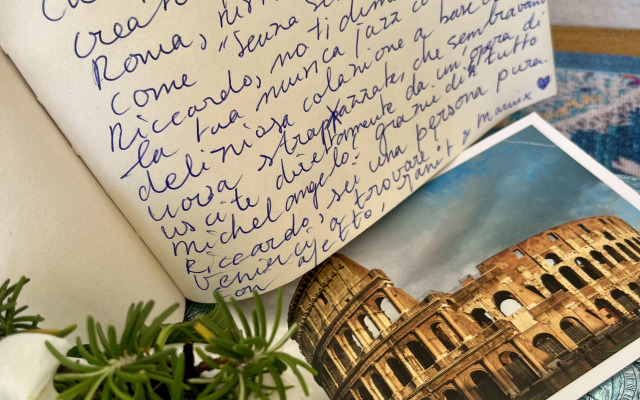 creat
Roma,
come "senza se
Riccardo, no ti dim
la tua musica jazz co
deliziosa colazione a base d
uova strappazzate, che sembravano
uscite direttamente da un'opera di
Michelangelo. grazie di tutto
Riccardo, sei una persona pura.
Venirci a trovare,
con affetto, & Mannix